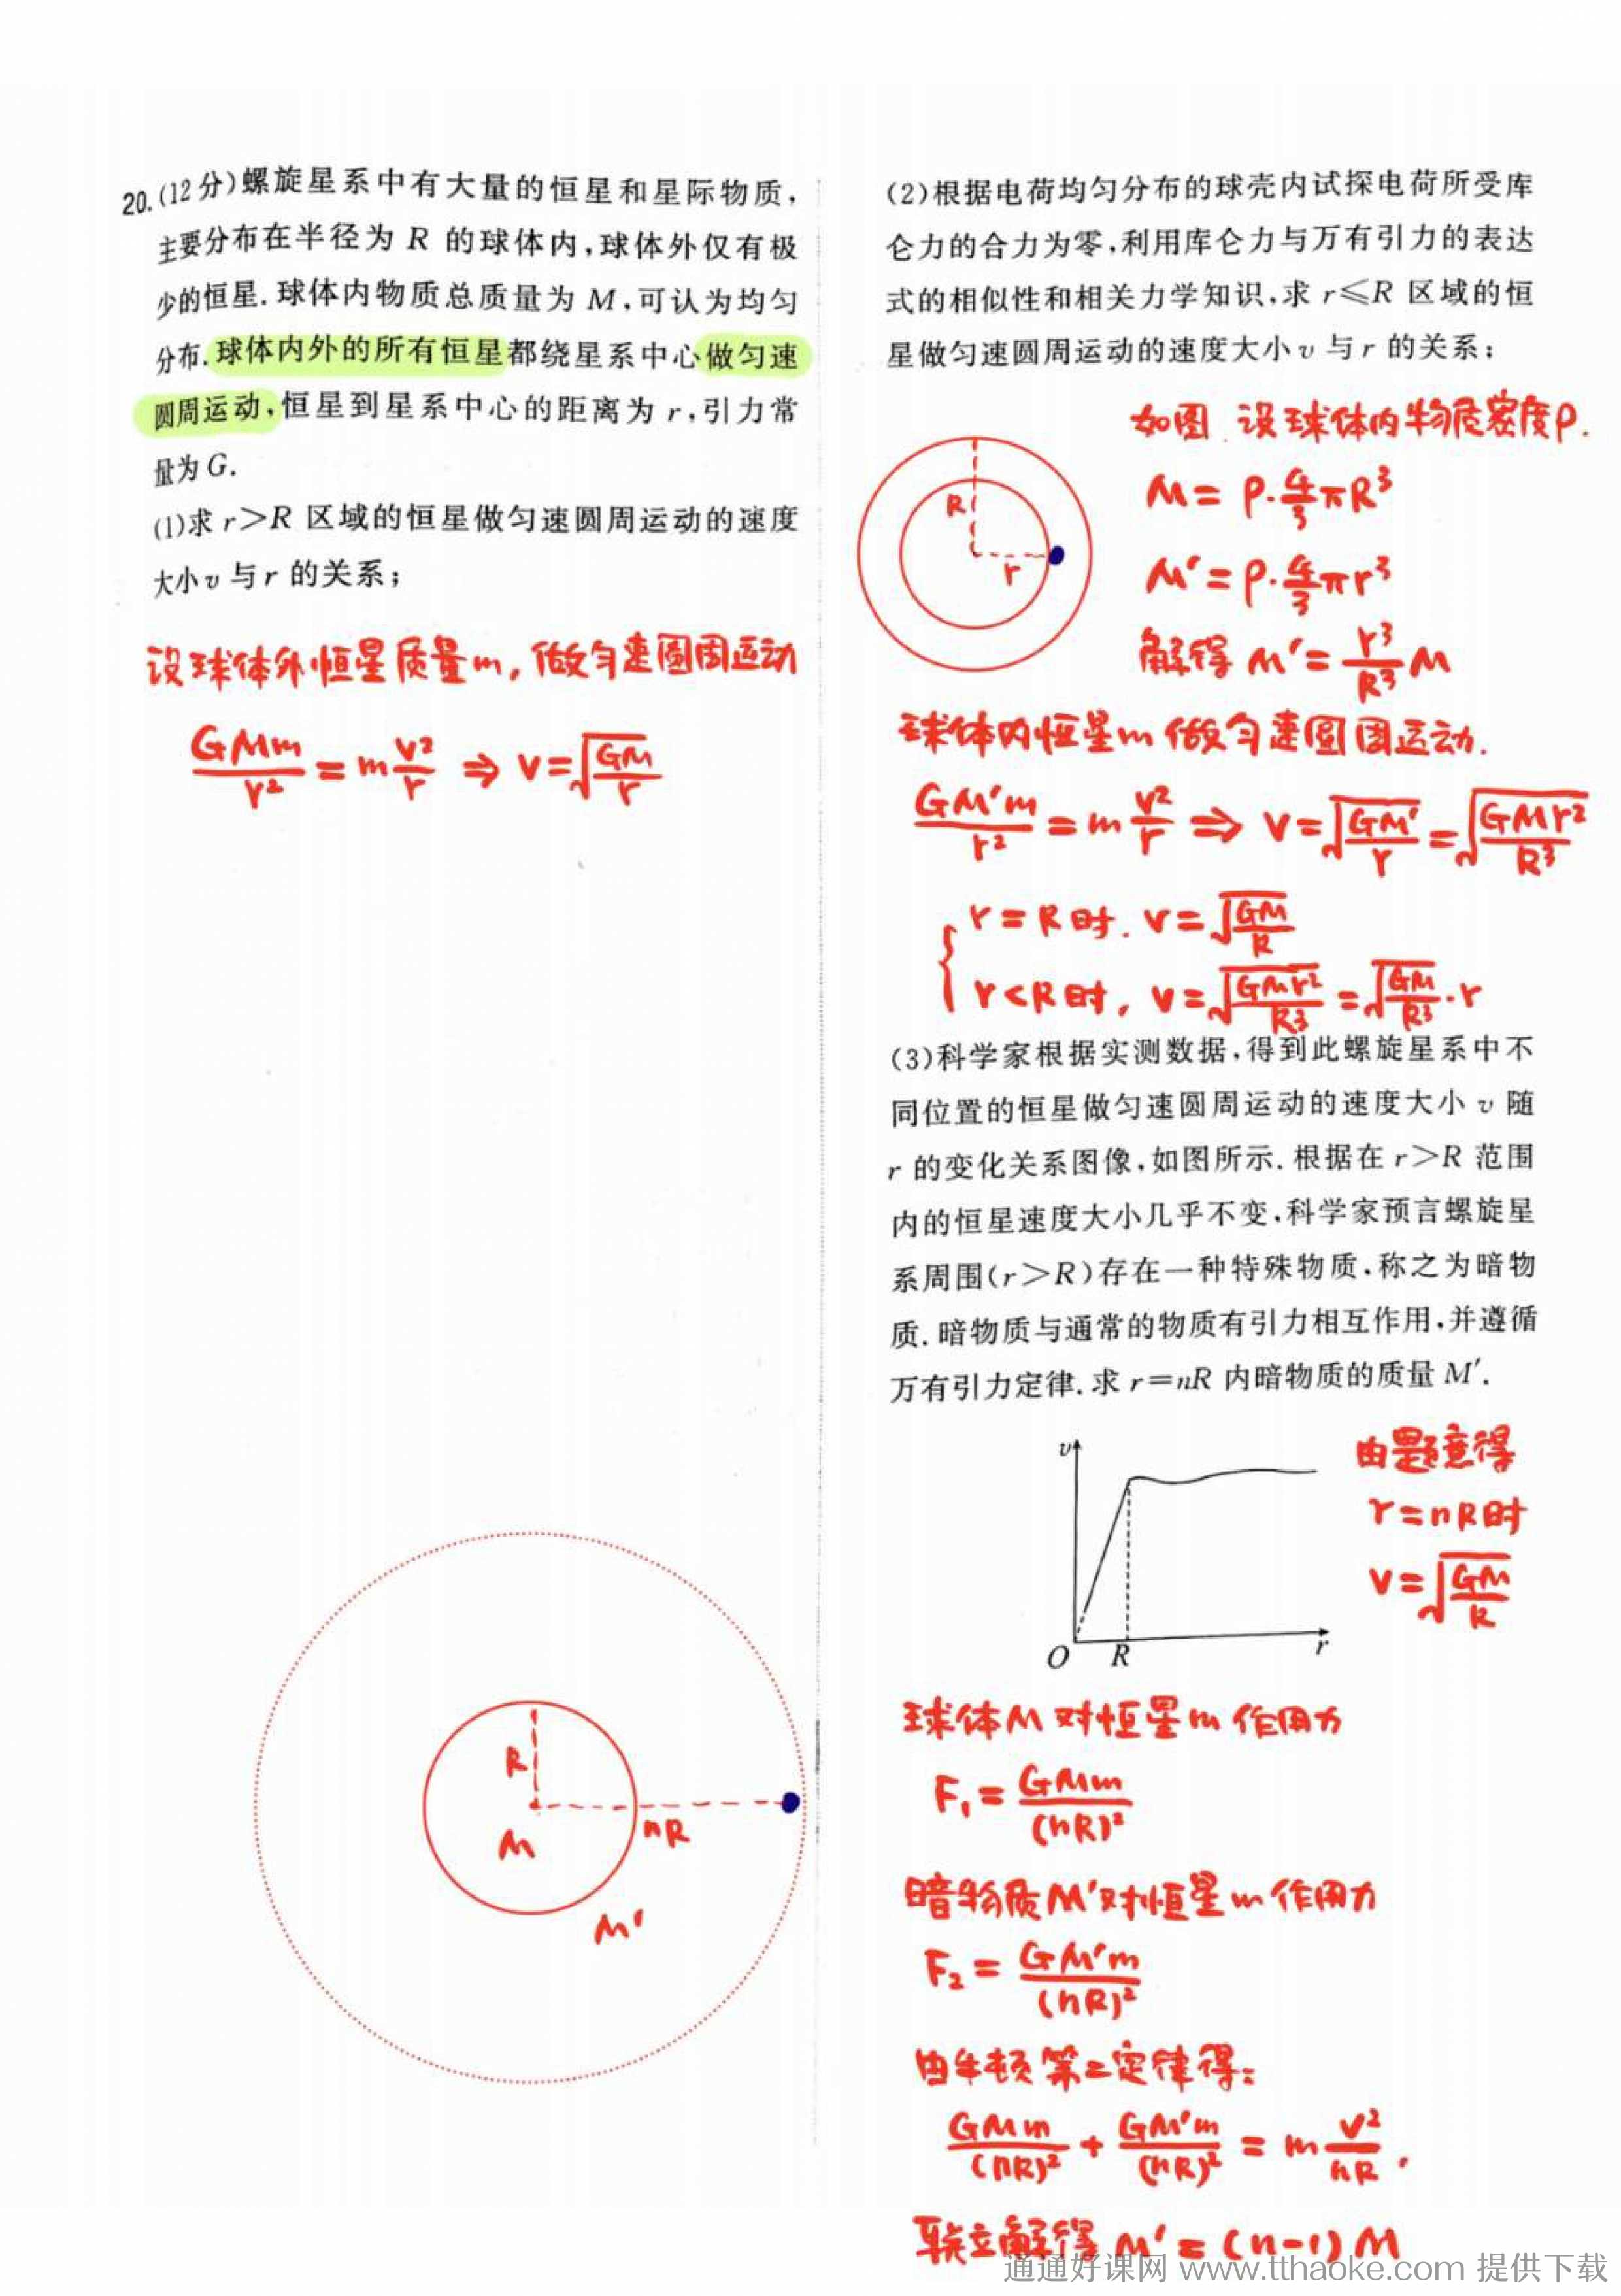 20.(12分)螺旋星系中有大量的恒星和星际物质,
主要分布在半径为 R 的球体内,球体外仅有极
少的恒星.球体内物质总质量为 M,可认为均匀
分布.球体内外的所有恒星都绕星系中心做匀速
圆周运动,恒星到星系中心的距离为 r,引力常
量为 G.
(1)求 r>R 区域的恒星做匀速圆周运动的速度
大小 v 与 r 的关系;
设球体外恒星质量m, 做匀速圆周运动
GMm/r² = m v²/r ⇒ v=√(GM/r)
R
M
nR
M'
(2)根据电荷均匀分布的球壳内试探电荷所受库
仑力的合力为零,利用库仑力与万有引力的表达
式的相似性和相关力学知识,求 r≤R 区域的恒
星做匀速圆周运动的速度大小 v 与 r 的关系;
如图.设球体内物质密度ρ.
R
r
M = ρ·4/3 πR³
M' = ρ·4/3 πr³
解得 M' = r³/R³ M
球体内恒星m 做匀速圆周运动.
GM'm/r² = m v²/r ⇒ v=√(GM'/r)=√(GMr²/R³)
{ r=R时. v=√(GM/R)
r<R时, v=√(GMr²/R³)=√(GM/R³)·r
(3)科学家根据实测数据,得到此螺旋星系中不
同位置的恒星做匀速圆周运动的速度大小 v 随
r 的变化关系图像,如图所示.根据在 r>R 范围
内的恒星速度大小几乎不变,科学家预言螺旋星
系周围(r>R)存在一种特殊物质,称之为暗物
质.暗物质与通常的物质有引力相互作用,并遵循
万有引力定律.求 r=nR 内暗物质的质量 M'.
v
O
R
r
由题意得
r=nR时
v=√(GM/R)
球体M 对恒星m 作用力
F₁= GMm/(nR)²
暗物质M'对恒星m 作用力
F₂= GM'm/(nR)²
由牛顿第二定律得:
GMm/(nR)² + GM'm/(nR)² = m v²/nR .
联立解得 M' = (n-1) M
通通好课网 www.tthaoke.com 提供下载